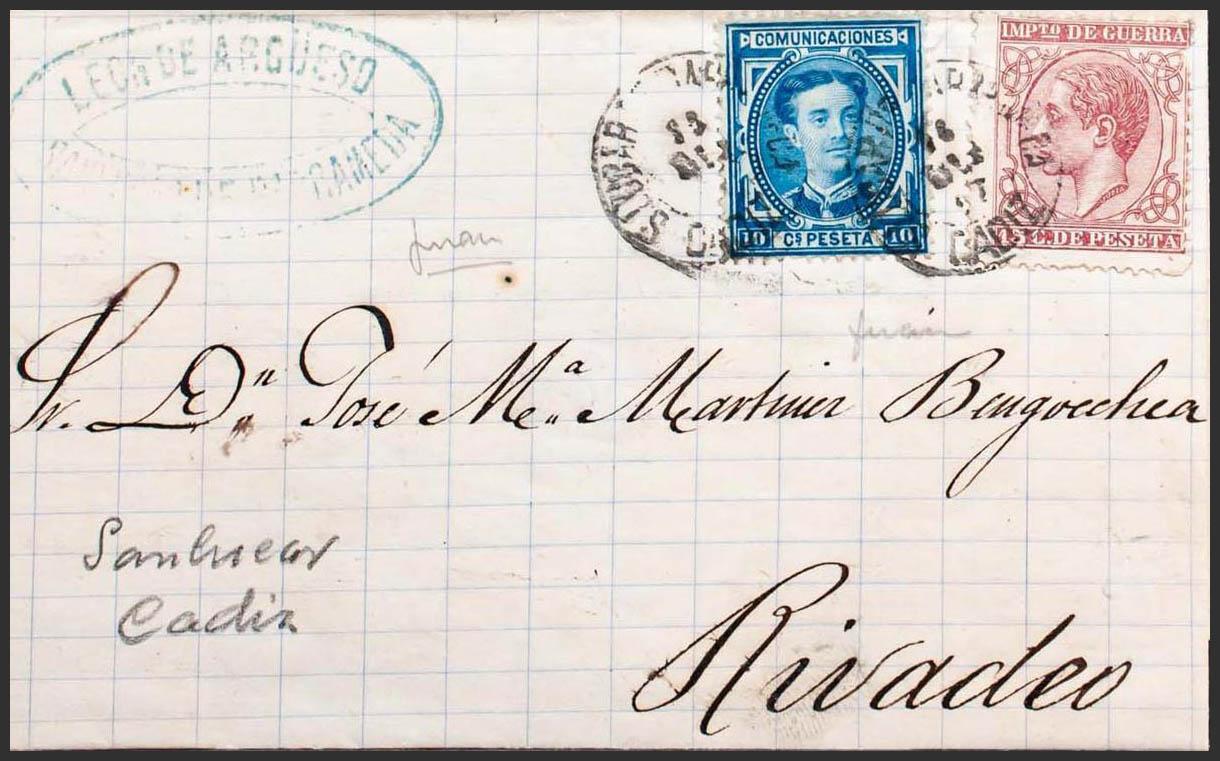 LEON DE ARGÜESO
BARRAMEDA
COMUNICACIONES
10 Cs PESETA 10
IMPTO DE GUERRA
C. DE PESETA
CADIZ
CADIZ
Juan
Juan
Sr. Dn. José Ma. Martinez Bengoechea
Sanlucar
Cadiz
Rivadeo